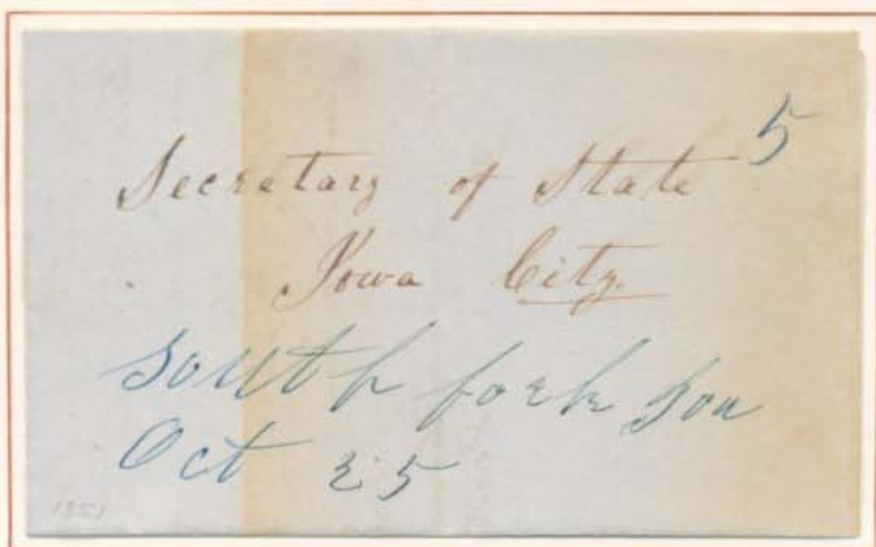 5
Secretary of State
Iowa City.
South fork Iow
Oct 25
1851